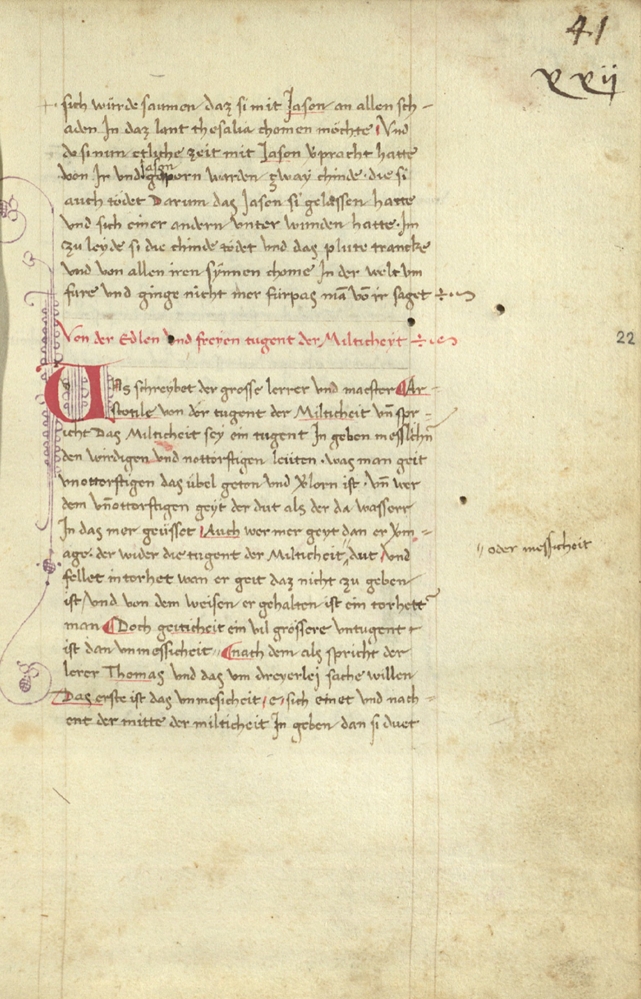 41
xxij
sich würde saumen daz si mit Jason an allen sch-
aden In daz lant thesalia chomen möchte Vnd
do si nun etliche zeit mit Jason vpracht hatte
von Ir vnd Jason geporn warden zway chinde die si
auch tödet Darum das Jason si gelassen hatte
vnd sich einer andern vnter wunden hatte. Im
zu leyde si die chinde tödet vnd das plute trancke
vnd von allen iren synnen chome In der welt vm
fure vnd ginge nicht mer fürpas mā vō ir saget
Von der Edlen vnd freyen tugent der Milticheyt
Das schreybet der grosse lerrer vnd maester Ar-
stotile von der tugent der Milticheit vn̄ spr-
icht Das Milticheit sey ein tugent In geben
den wirdigen vnd nottorftigen leüten. was man geit
vnottorftigen das übel geton vnd vlorn ist. vn̄ wer
dem vnottorftigen geyt der dut als der da wassere
In das mer geüsset Auch wer mer geyt dan er vm-
age. der wider die tugent der Milticheit dut vnd
" oder messicheit
fellet in torhet wan er geit daz nicht zu geben
ist vnd von dem weisen er gehalten ist ein torhett
man Doch geiticheit ein vil grössere vntugent
ist dan vnmessicheit nach dem als spricht der
lerer Thomas vnd das vm dreyerlej sache willen
Das erste ist das vnmesicheit sich etnet vnd nach-
ent der mitte der milticheit In geben dan si duet
22